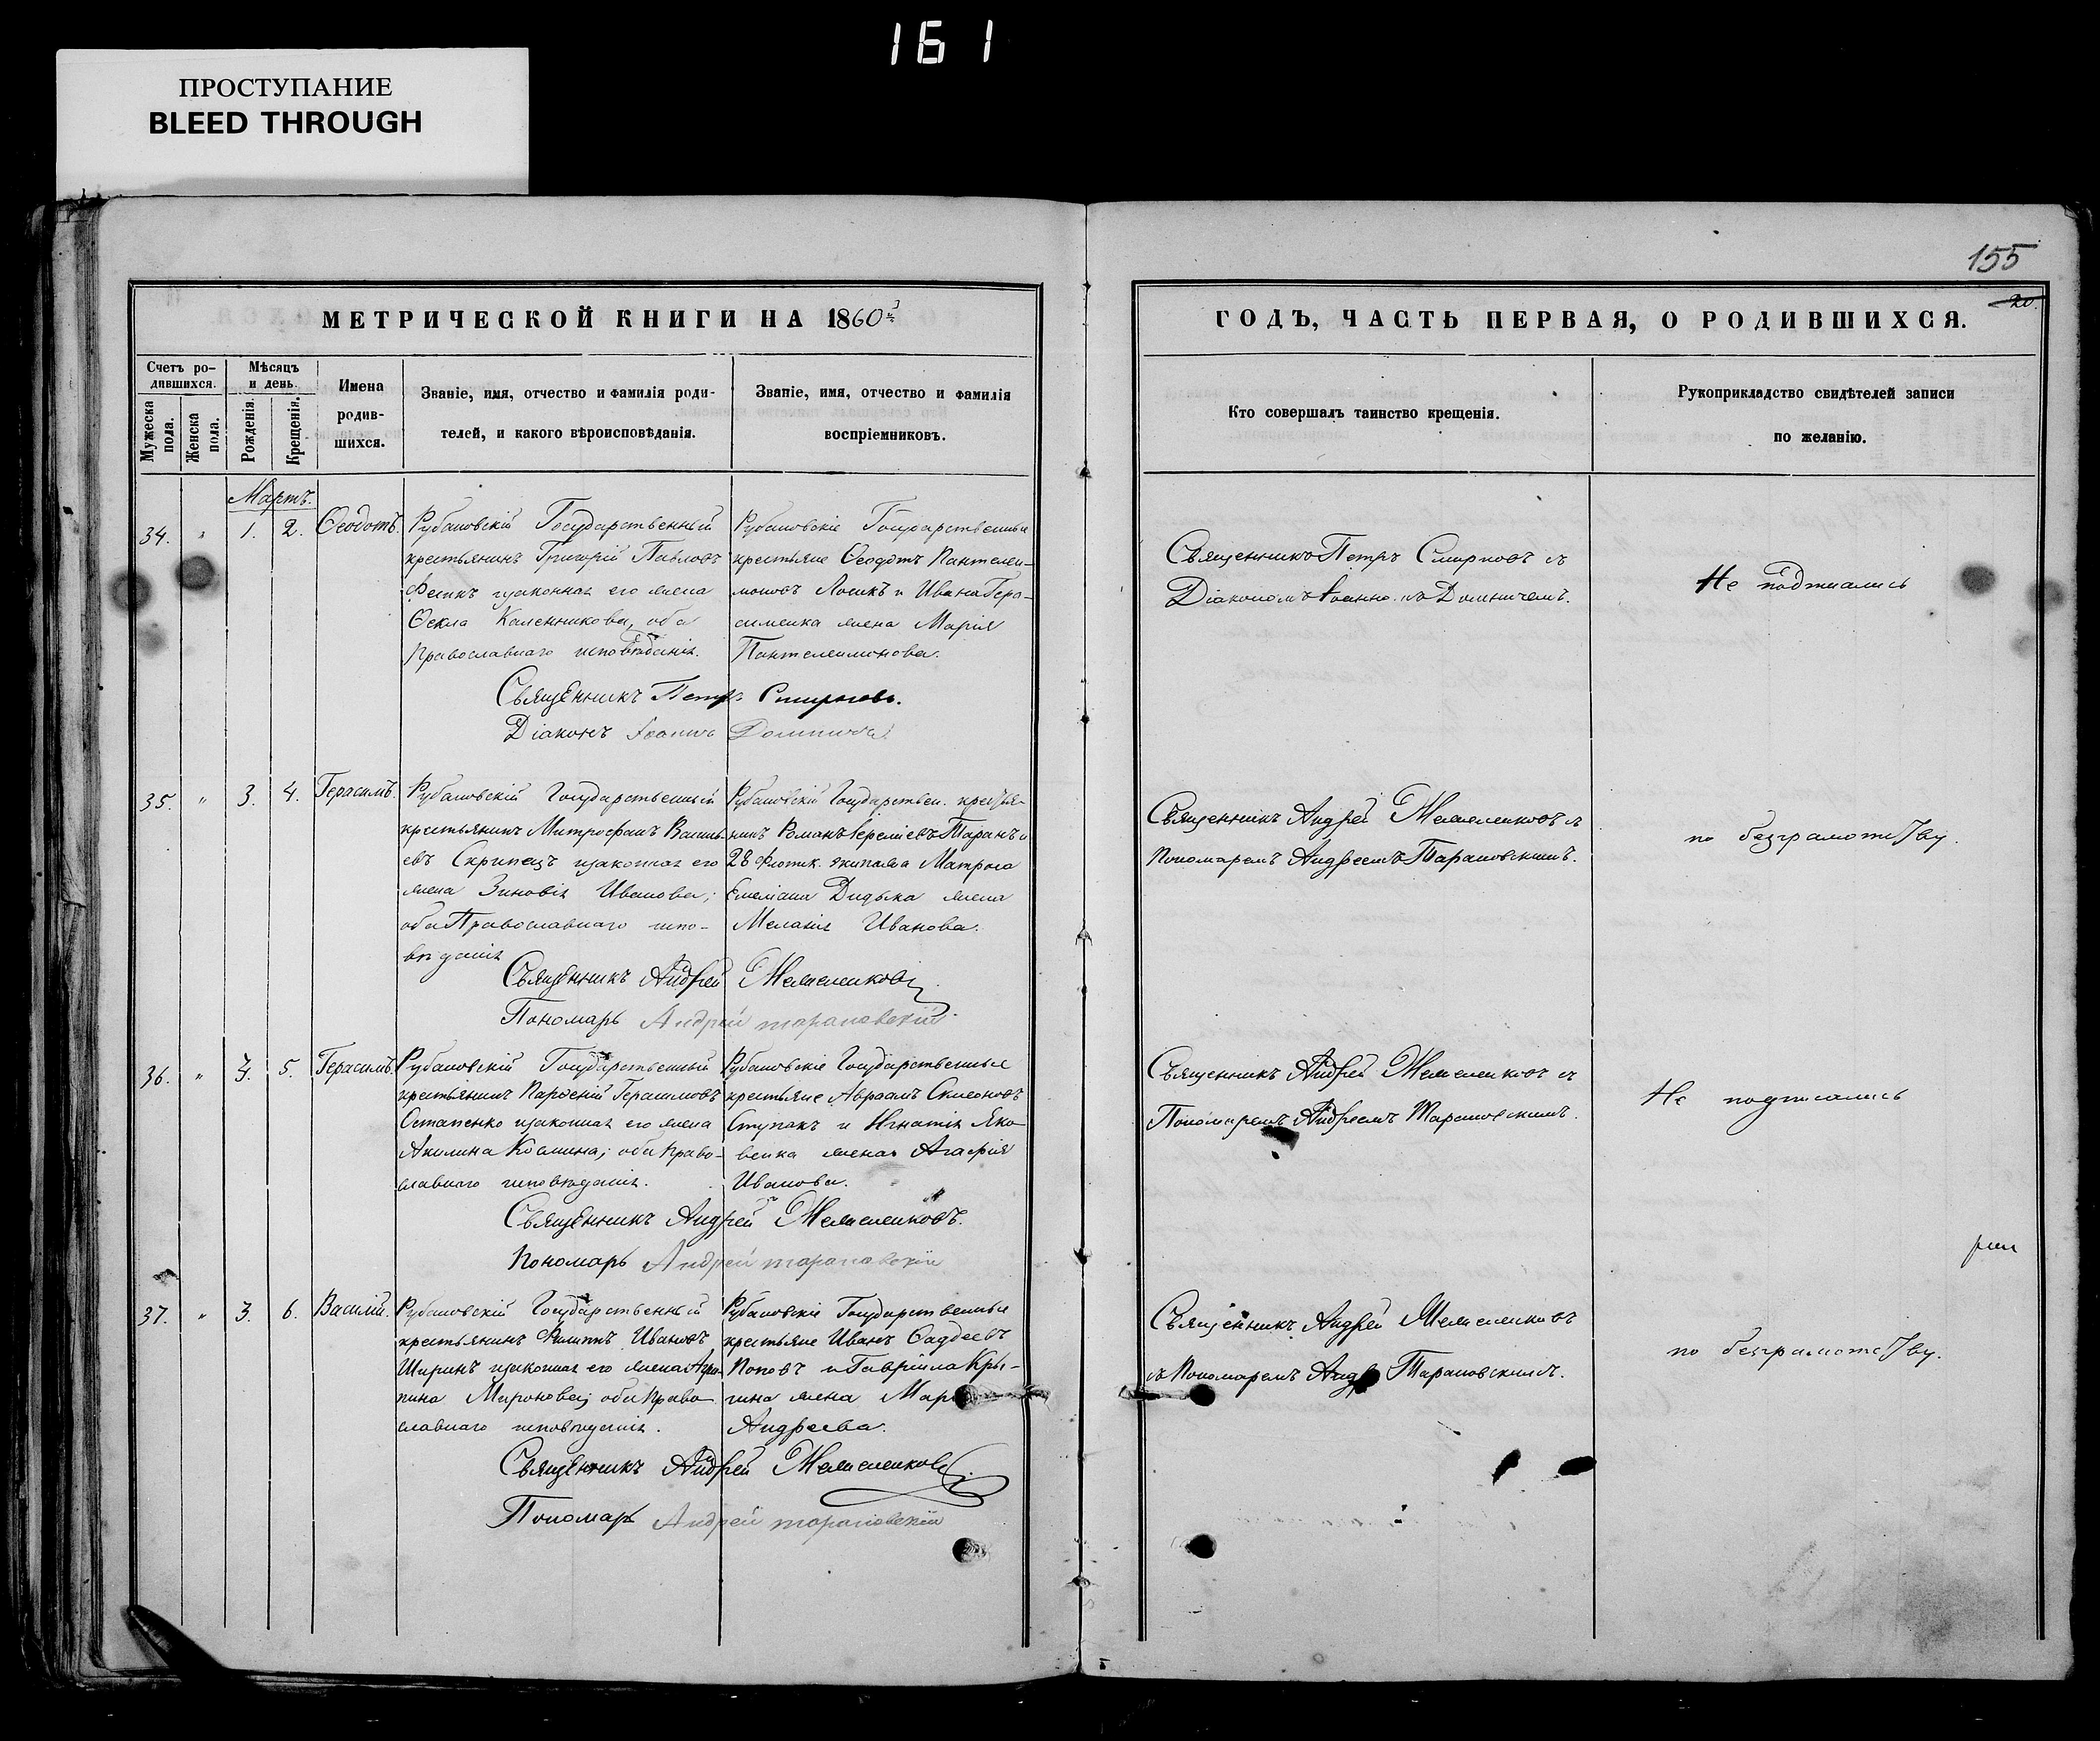 161
ПРОСТУПАНИЕ
BLEED THROUGH
155
20.
МЕТРИЧЕСКОЙ КНИГИ НА 1860й
ГОДЪ, ЧАСТЬ ПЕРВАЯ, О РОДИВШИХСЯ.
Счетъ ро-
дившихся.
Мужеска
пола.
Женска
пола.
Мѣсяцъ
и день.
Рожденія.
Крещенія.
Имена
родив-
шихся.
Званіе, имя, отчество и фамилія роди-
телей, и какого вѣроисповѣданія.
Званіе, имя, отчество и фамилія
воспріемниковъ.
Кто совершалъ таинство крещенія.
Рукоприкладство свидѣтелей записи
по желанію.
Мартъ.
34. " 1. 2. Ѳеодотъ.
Рубановскій Государственный
крестьянинъ Григорій Павловъ
законная его жена
Ѳекла Каленникова, оба
Православнаго исповѣданія.
Рубановскіе Государственные
крестьяне Ѳеодотъ Пантелеи-
моновъ и Ивана Гера-
сименка жена Марія
Пантелеимонова.
Священникъ Петръ Смирновъ съ
Діакономъ
Не подписались
Священникъ Петръ Смирновъ.
Діаконъ Іоаннъ
35. " 3. 4. Герасимъ.
Рубановскій Государственный
крестьянинъ Митрофанъ Василь-
евъ Скрипецъ законная его
жена Зиновія Иванова;
оба Православнаго испо-
вѣданія
Рубановскій Государствен. крестья-
нинъ Романъ Іереміевъ Таранъ и
28 флотск. экипажа Матроса
Емеліана Дидька жена
Меланія Иванова.
Священникъ Андрей Жежеленковъ съ
Пономаремъ Андреемъ Тарановскимъ.
по безграмотству.
Священникъ Андрей Жежеленковъ
Пономарь Андрей Тарановскій
36. " 3. 5. Герасимъ.
Рубановскій Государственный
крестьянинъ Парфеній Герасимовъ
Остапенко законная его жена
Акилина Космина; оба Право-
славнаго исповѣданія.
Рубановскіе Государственные
крестьяне Авраамъ Симеоновъ
Ступакъ и Игнатія Яко-
венка жена Агафія
Иванова.
Священникъ Андрей Жежеленковъ съ
Пономаремъ Андреемъ Тарановскимъ.
Не подписались
Священникъ Андрей Жежеленковъ.
Пономарь Андрей Тарановскій
37. " 3. 6. Василій.
Рубановскій Государственный
крестьянинъ Филиппъ Ивановъ
Ширинъ законная его жена Агри-
пина Миронова; оба Право-
славнаго исповѣданія.
Рубановскіе Государственные
крестьяне Иванъ Ѳаддеевъ
Поповъ и Гавріила Кры-
гина жена
Андреева.
Священникъ Андрей Жежеленковъ
съ Пономаремъ Тарановскимъ.
по безграмотству.
Священникъ Андрей Жежеленковъ
Пономарь Андрей Тарановскій